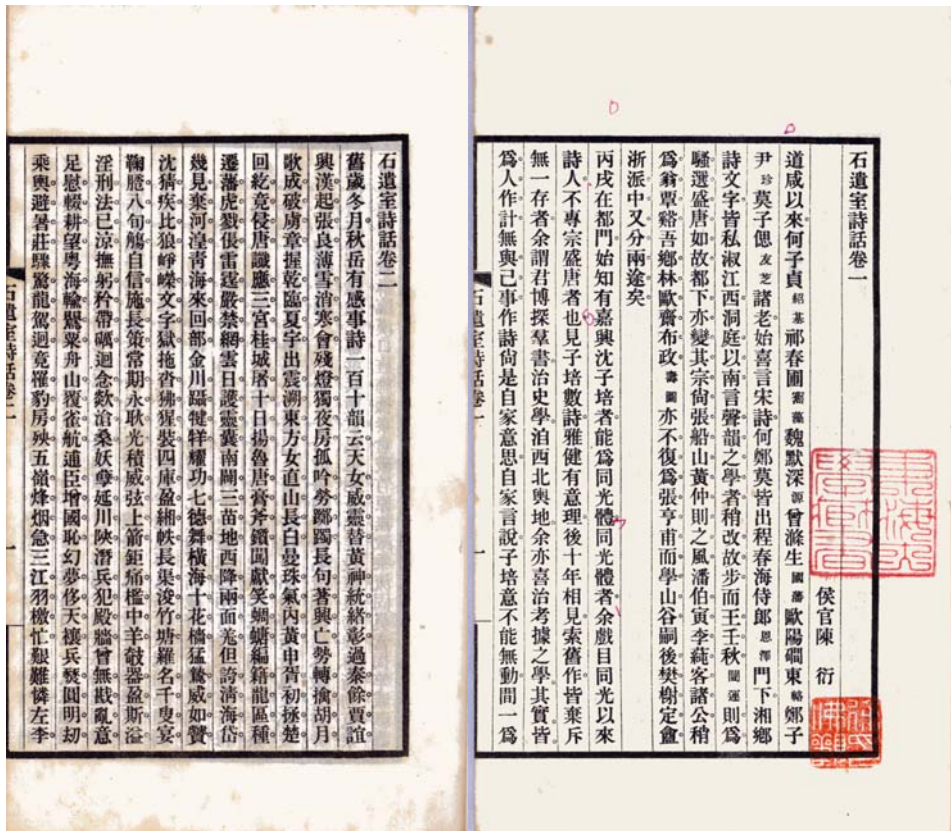 石遺室詩話卷一
侯官陳 衍
道咸以來何子貞紹基祁春圃寯藻魏默深源曾滌生國藩歐陽磵東輅鄭子
尹珍莫子偲友芝諸老始喜言宋詩何鄭莫皆出程春海侍郎恩澤門下湘鄉
詩文字皆私淑江西洞庭以南言聲韻之學者稍改故步而王壬秋闓運則爲
騷選盛唐如故都下亦變其宗尙張船山黃仲則之風潘伯寅李蒓客諸公稍
爲翁覃谿吾鄉林歐齋布政壽圖亦不復爲張亨甫而學山谷嗣後樊榭定盦
浙派中又分兩途矣
丙戌在都門始知有嘉興沈子培者能爲同光體同光體者余戲目同光以來
詩人不專宗盛唐者也見子培數詩雅健有意理後十年相見索舊作皆棄斥
無一存者余謂君博探羣書治史學洎西北輿地余亦喜治考據之學其實皆
爲人作計無與己事作詩尙是自家意思自家言說子培意不能無動間一爲
石遺室詩話卷一
一
石遺室詩話卷二
舊歲冬月秋岳有感事詩一百十韻云天女威靈替黃神統緒彰過秦餘賈誼
興漢起張良薄雪消寒會殘燈獨夜房孤吟勞躑躅長句著興亡勢轉擒胡月
歌成破虜章握乾臨夏宇出震溯東方女直山長白曼珠氣內黃申胥初拯楚
回紇竟侵唐讖應三宮桂城屠十日揚魯唐膏斧鑕闖獻笑蜩螗編籍龍區種
遷藩虎戮倀雷霆嚴禁網雲日護靈囊南闢三苗地西降兩面羌但誇淸海岱
幾見棄河湟靑海來回部金川躡犍牂耀功七德舞橫海十花檣猛鷙威如贊
沈猜疾比狼崢嶸文字獄拖沓狒猩裝四庫盈緗帙長渠浚竹塘羅名千叟宴
鞠䐈八旬觴自信施長策常期永耿光積威弦上箭鉅痛檻中羊攲器盈斯溢
淫刑法已涼撫躬矜帶礪迴念欻滄桑妖孽延川陝潛兵犯殿牆曾無戡亂意
足慰輟耕望粵海輸罌粟舟山覆雀航逋臣增國恥幻夢侈天穰兵燹圓明劫
乘輿避暑莊驟驚龍駕迴竟罹豹房殃五嶺烽烟急三江羽檄忙艱難憐左李
石遺室詩話卷二
一